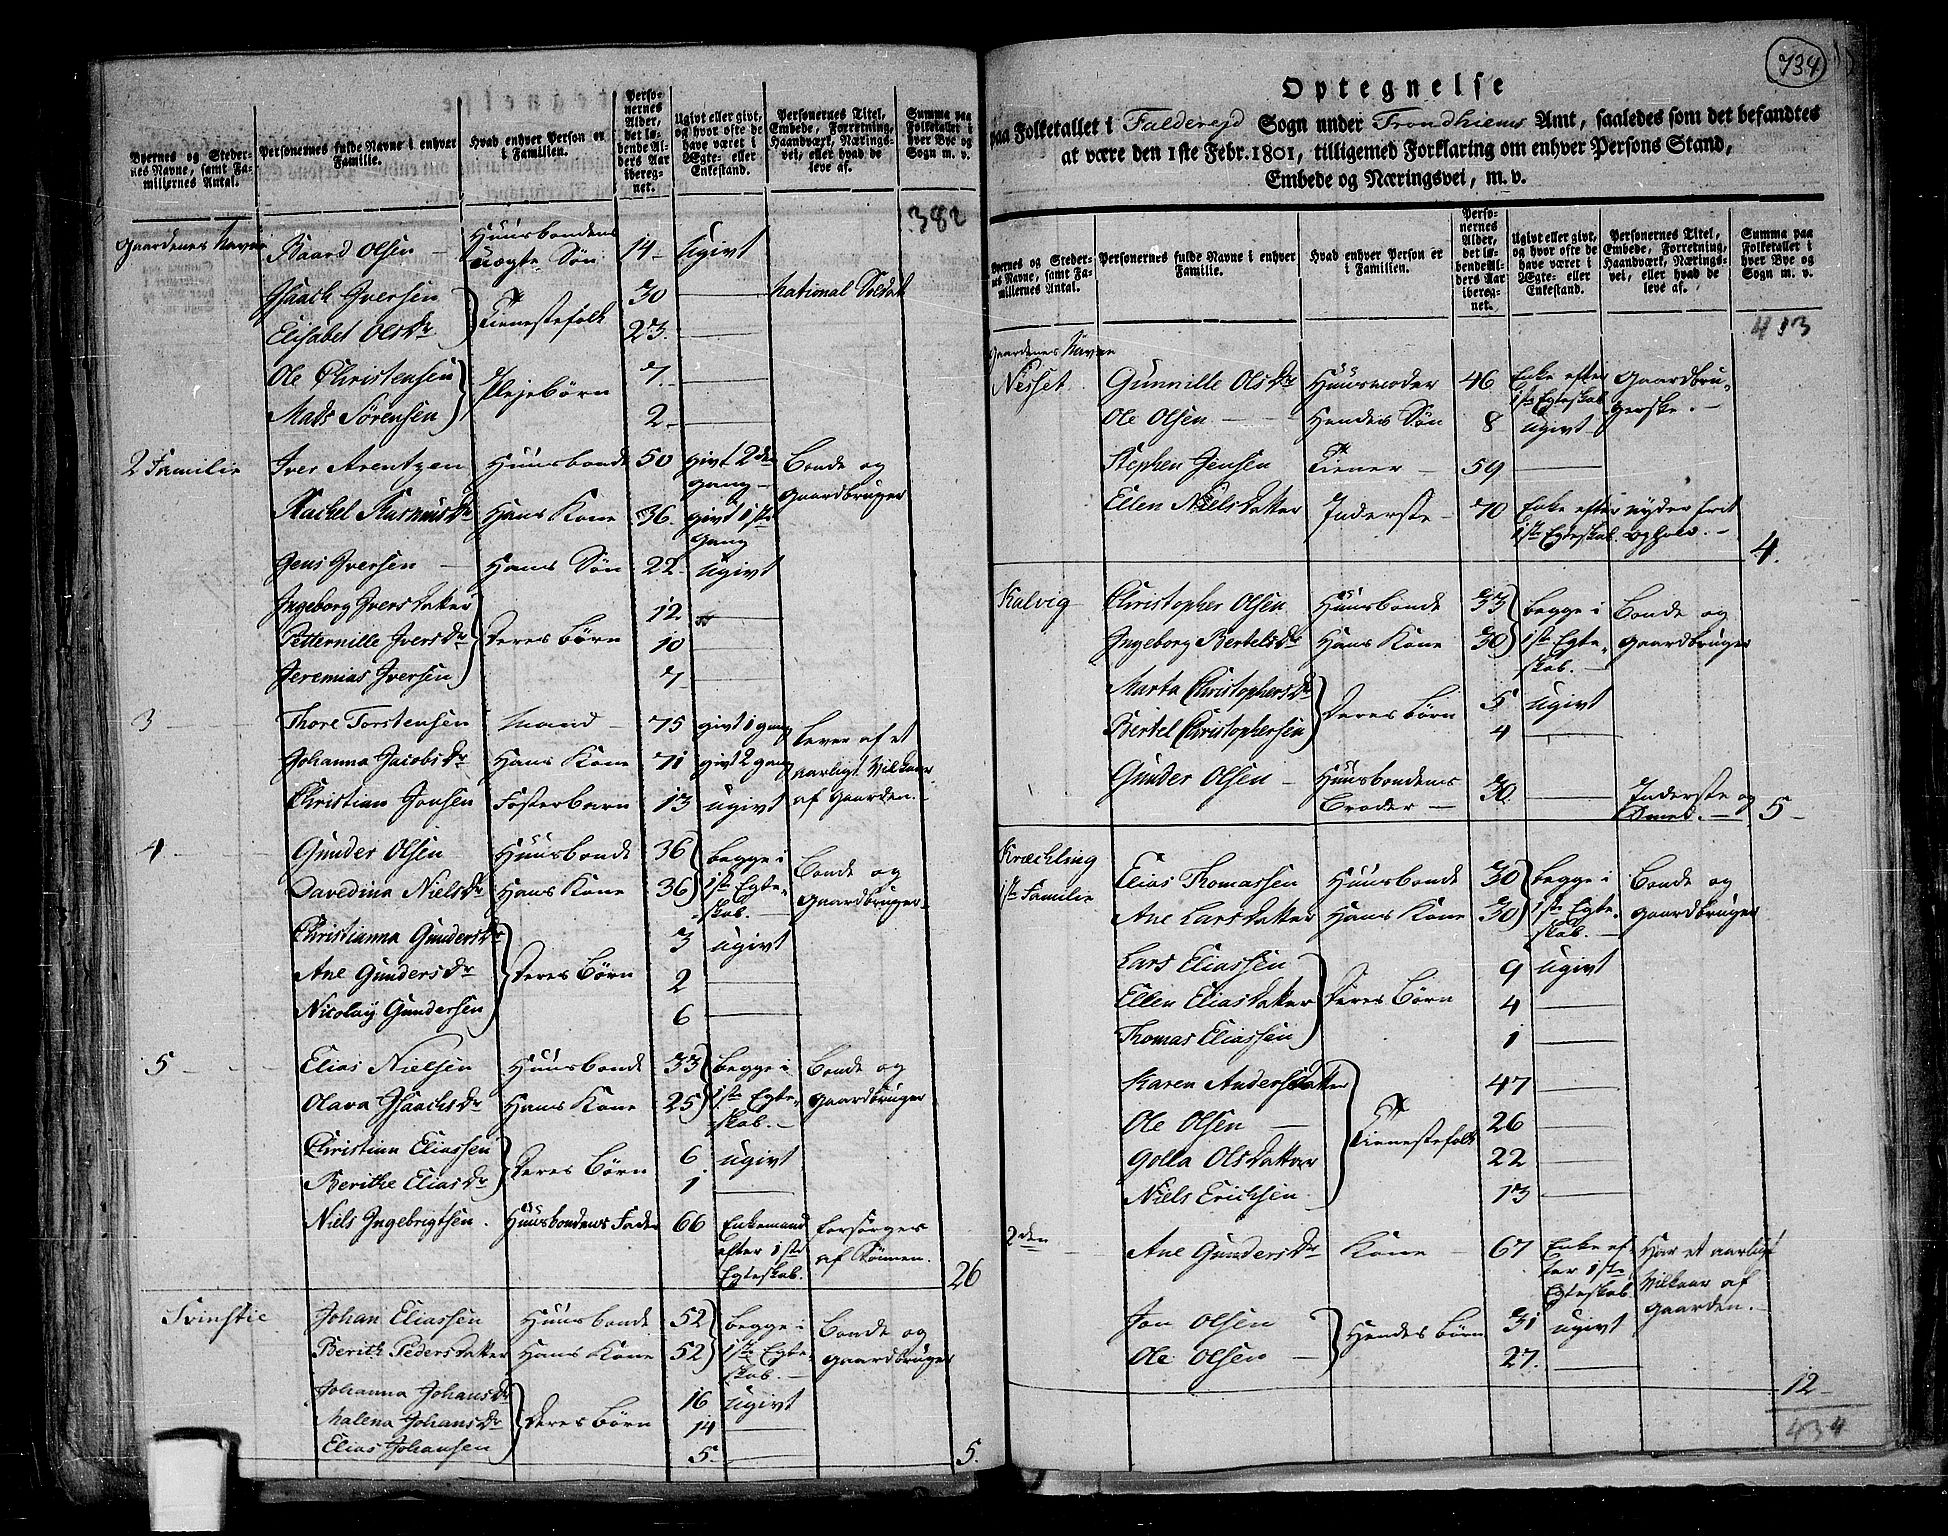 Byernes og Stedernes Navne, samt Familliernes Antal.
Personernes fulde Navne i enhver Familie.
Hvad enhver Person er i Familien.
Personernes Alder, det løbende Alders Aar iberegnet.
Ugivt eller givt, og hvor ofte de have været i Ægte- eller Enkestand.
Personernes Titel, Embede, Forretning, Haandværk, Næringsvei, eller hvad de leve af.
Summa paa Folketallet i hver Bye og Sogn m. v.
382
Gaardenes Navne Baard Olsen — Huusbondens uægte Søn 14 - ugivt
Isaach Iversen } Tienestefolk 30 — National Soldat
Elisabet Olsdr 23. —
Ole Christensen } Plejebørn 7. —
Mads Sørensen 2 - —
2 Familie Iver Arentzen Huusbonde 50 givt 2den gang - Bonde og Gaardbruger
Rachel Rasmusdr Hans Kone 36. givt 1ste Gang
Jens Iversen — Hans Søn 22. ugivt
Ingeborg Iversdatter } Deres Børn 12. —
Petternille Iversdr 10 —
Jeremias Iversen 7 - —
3 — Thore Torstensen Mand — 75 givt 1 gang Lever af et
Johanna Jacobsdr Hans Kone 71 givt 2 gang aarligt Vilkaar
Christian Jonsen Fosterbarn 13 ugivt af Gaarden. -
4 — Gunder Olsen Huusbonde 36 } begge i 1ste Egteskab. — Bonde og Gaardbruger.
Davedina Nielsdr Hans Kone 36
Christianna Gundersdr } Deres Børn 3 ugivt
Ane Gundersdr 2 —
Nicolay Gundersen 6 —
5 - Elias Nielsen Huusbonde 33 } begge i 1ste Egteskab. — Bonde og Gaardbruger
Olava Isaachsdr Hans Kone 25
Christian Eliassen } Deres Børn 6 ugivt
Berithe Eliasdr 1 —
Niels Ingebrigtsen. Huusbondens Fader 66 Enkemand efter 1ste Egteskab. Forsørges af Sønnen.
26
Svinstie Johan Eliassen Huusbonde 52 } begge i 1ste Egteskab. — Bonde og Gaardbruger
Berith Pedersdatter Hans Kone 52
Johanna Johansdr } Deres Børn 16 ugivt
Malena Johansdr 14 —
Elias Johansen 5. —
5.
734
Optegnelse
paa Folketallet i Falderejd Sogn under Trondhiems Amt, saaledes som det befandtes
at være den 1ste Febr. 1801, tilligemed Forklaring om enhver Persons Stand,
Embede og Næringsvei, m. v.
Byernes og Stedernes Navne, samt Familliernes Antal.
Personernes fulde Navne i enhver Familie.
Hvad enhver Person er i Familien.
Personernes Alder, det løbende Alders Aar iberegnet.
Ugivt eller givt, og hvor ofte de have været i Ægte- eller Enkestand.
Personernes Titel, Embede, Forretning, Haandværk, Næringsvei, eller hvad de leve af.
Summa paa Folketallet i hver Bye og Sogn m. v.
413
Gaardenes Navne
Nesset Gunnille Olsdr Huusmoder 46 Enke efter 1ste Egteskab Gaardbrugerske. —
Ole Olsen — Hendes Søn 8 ugivt
Stephen Jensen Tiener — 59 —
Ellen Nielsdatter Inderste - 70 Enke efter 1ste Egteskab nyder frit Ophold. -
4.
Kalvig Christopher Olsen Huusbonde 33 } begge i 1ste Egteskab. — Bonde og Gaardbruger
Ingeborg Bertelsdr Hans Kone 30
Marta Christophersdr } Deres Børn 5 ugivt
Bertel Christophersen 4 —
Gunder Olsen — Huusbondens Broder — 30. — Inderste og Smed. —
5 -
Kræchling
1ste Familie Elias Thomassen Huusbonde 30 } begge i 1ste Egteskab. — Bonde og Gaardbruger
Ane Larsdatter Hans Kone 30
Lars Eliassen } Deres Børn 9 ugivt
Ellen Eliasdatter 4 —
Thomas Eliassen 1 —
Karen Andersdatter } Tienestefolk 47 —
Ole Olsen — 26 —
Golla Olsdatter 22 —
Niels Erichsen. 13 —
2den — Ane Gundersdr Kone — 67 Enke efter 1ste Egteskab Har et aarligt Vilkaar af Gaarden. —
Jon Olsen } Hendes Børn 31 ugivt
Ole Olsen — 27. —
12 -
434